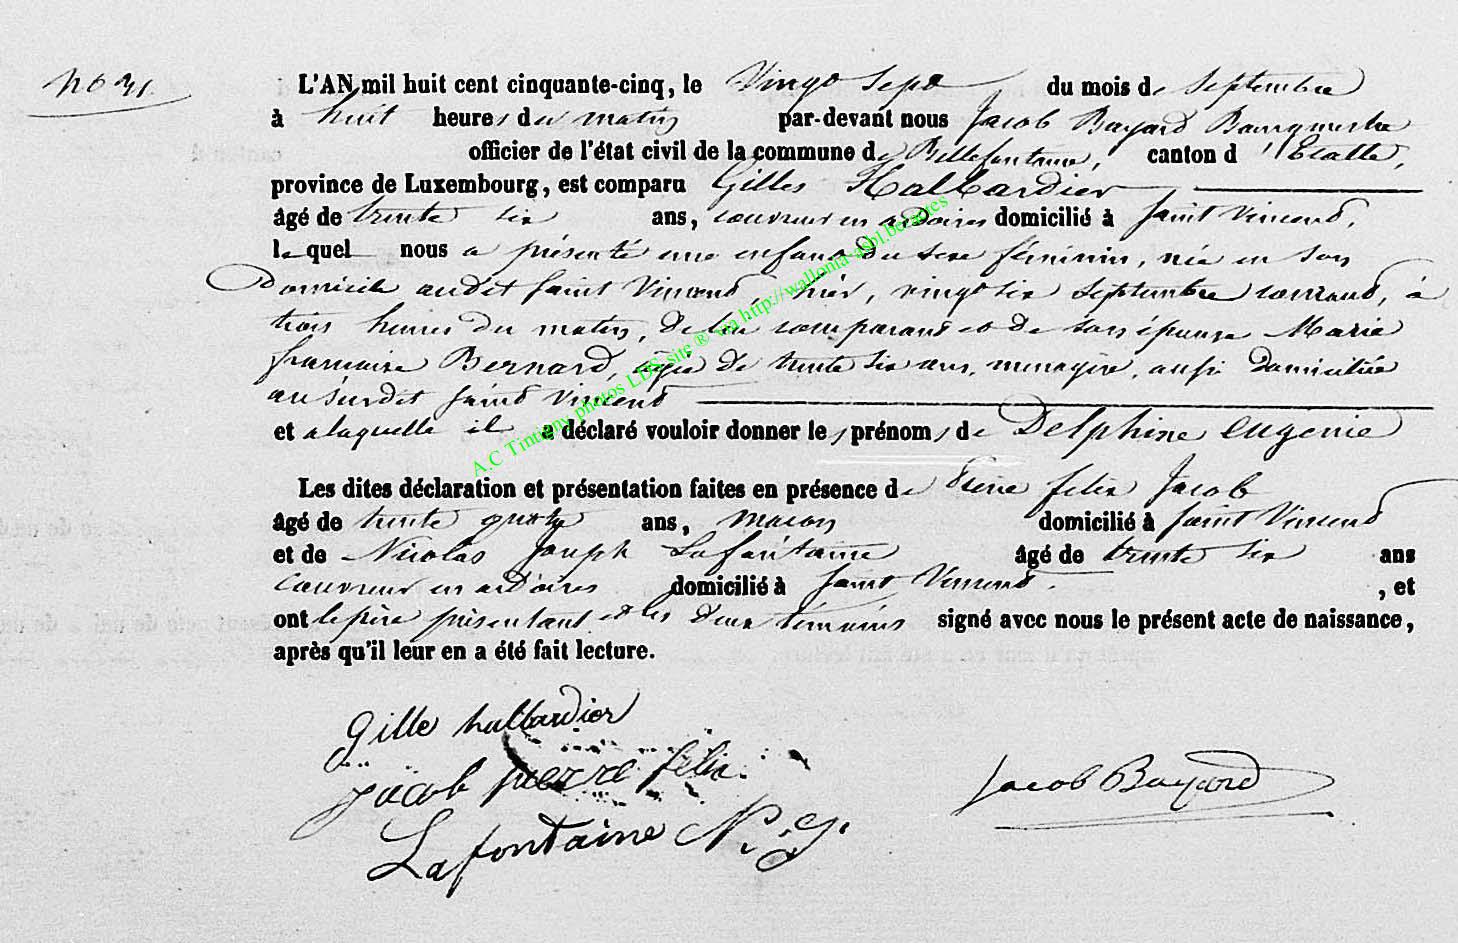 No 31.
L'AN mil huit cent cinquante-cinq, le Vingt Sept du mois de Septembre
à huit heures du matin par-devant nous Jacob Bayard Bourgmestre
officier de l'état civil de la commune de Bellefontaine, canton d'Etalle,
province de Luxembourg, est comparu Gilles Hallbardier
âgé de trente six ans, couvreur en ardoires domicilié à Saint Vincent,
lequel nous a présenté une enfant du sexe féminin, née en son
Domicile audit Saint Vincent, hier, vingt six Septembre courant, à
trois heures du matin, de lui comparant et de son épouse Marie
francoise Bernard, agée de trente six ans, menagère, aussi domiciliée
au surdit Saint Vincent
et a laquelle il a déclaré vouloir donner les prénoms de Delphine Eugenie
Les dites déclaration et présentation faites en présence de Pierre felix Jacob
âgé de trente quatre ans, macon domicilié à Saint Vincent
et de Nicolas Joseph Lafontaine âgé de trente six ans
Couvreur en ardoires domicilié à Saint Vincent. , et
ont le père présentant et les deux témoins signé avec nous le présent acte de naissance,
après qu'il leur en a été fait lecture.
Gille hallbardier
jacob pierre félix
Lafontaine N. j.
Jacob Bayard
A.C Tintigny photos LDS site ® via http://wallonia-asbl.be/actes